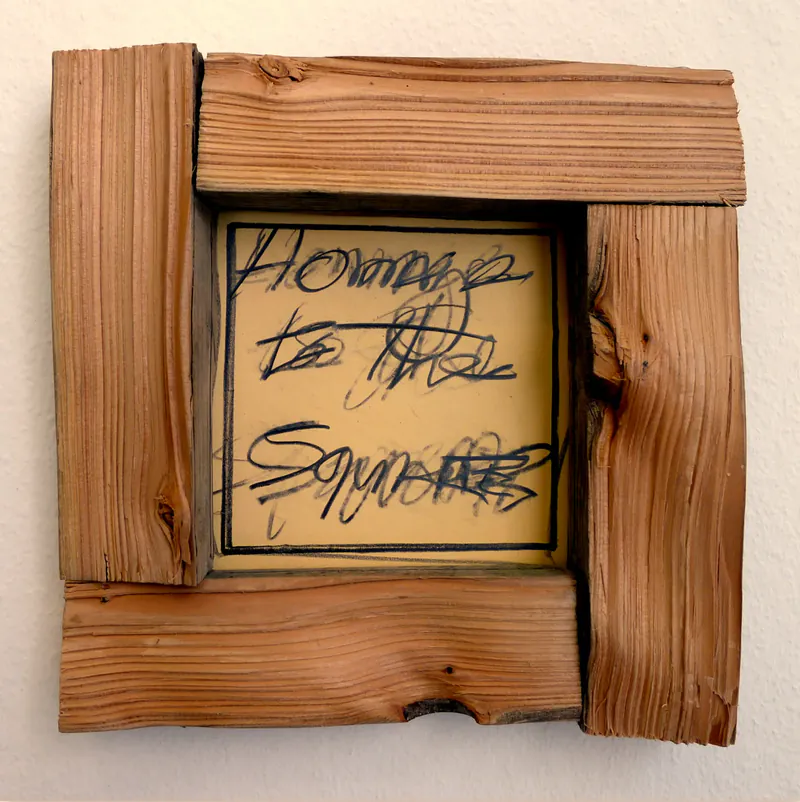 Homage
to the
Square